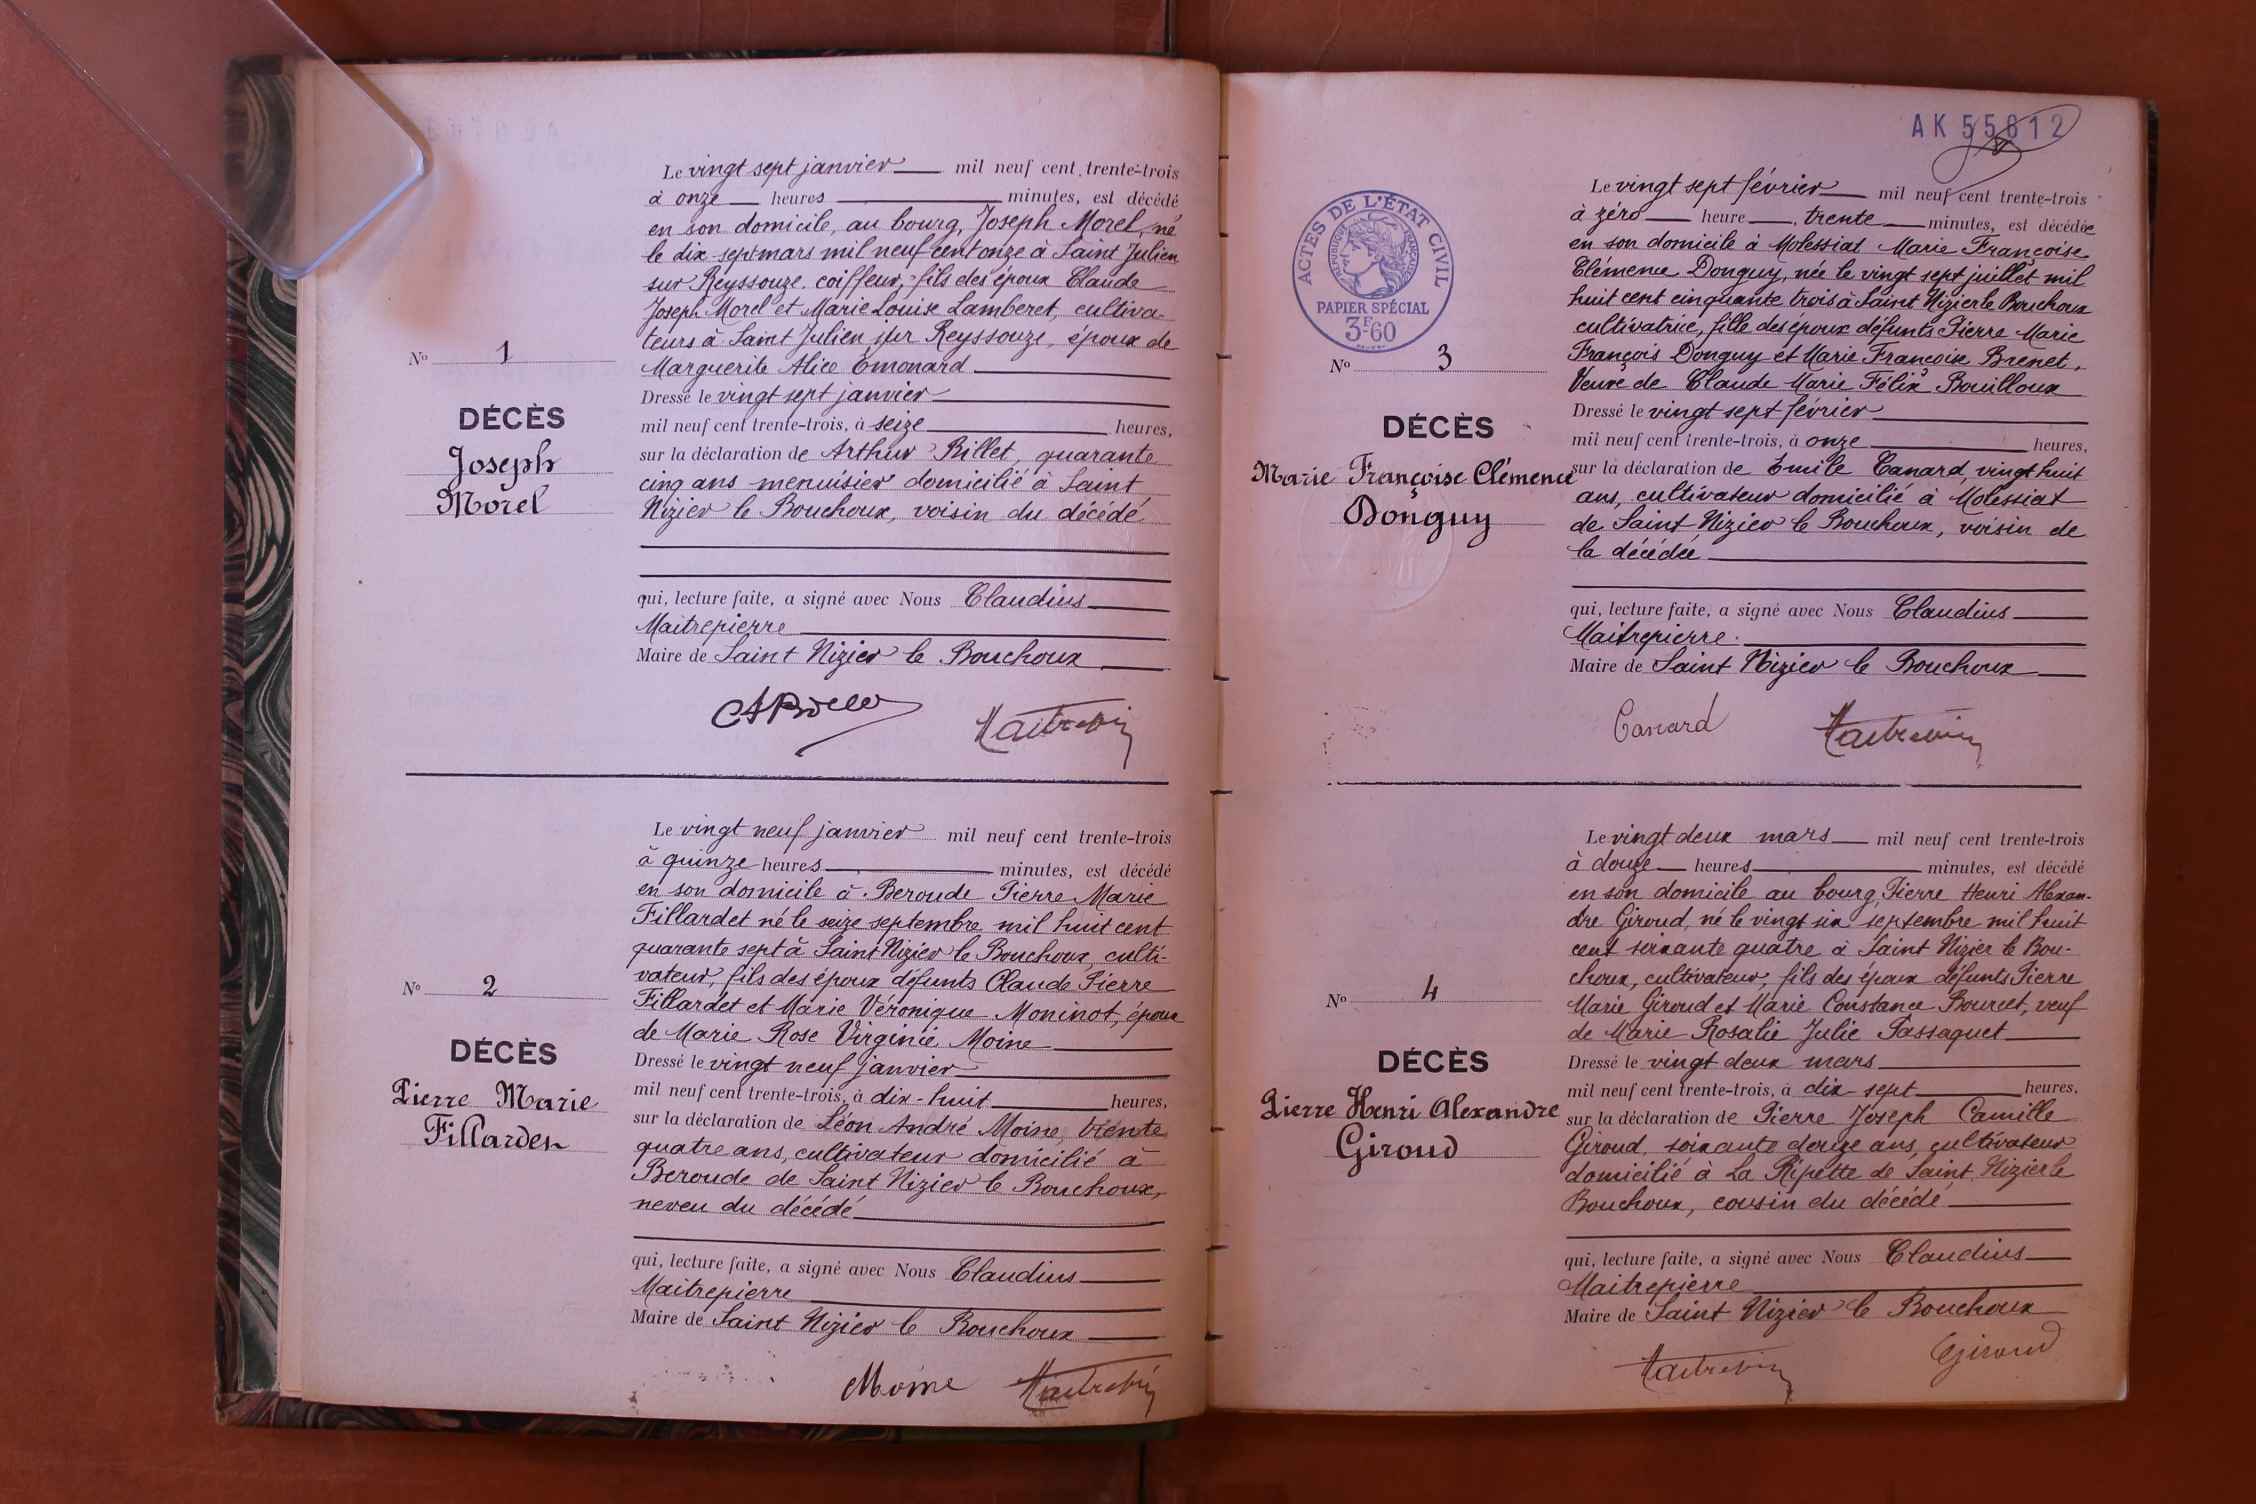 Le vingt sept janvier mil neuf cent trente-trois
à onze heures minutes, est décédé
en son domicile, au bourg, Joseph Morel, né
le dix-sept mars mil neuf cent onze à Saint Julien
sur Reyssouze, coiffeur, fils des époux Claude
Joseph Morel et Marie Louise Lamberet, cultiva-
teurs à Saint Julien sur Reyssouze, époux de
Marguerite Alice Emonard
Dressé le vingt sept janvier
mil neuf cent trente-trois, à seize heures,
sur la déclaration de Arthur Billet, quarante
cinq ans menuisier domicilié à Saint
Nizier le Bouchoux, voisin du décédé
qui, lecture faite, a signé avec Nous Claudius
Maitrepierre
Maire de Saint Nizier le Bouchoux
No 1
DÉCÈS
Joseph
Morel
Le vingt neuf janvier mil neuf cent trente-trois
à quinze heures minutes, est décédé
en son domicile à Beroude Pierre Marie
Fillardet né le seize septembre mil huit cent
quarante sept à Saint Nizier le Bouchoux, culti-
vateur, fils des époux défunts Claude Pierre
Fillardet et Marie Véronique Moninot, époux
de Marie Rose Virginie Moine
Dressé le vingt neuf janvier
mil neuf cent trente-trois, à dix-huit heures,
sur la déclaration de Léon André Moine, trente
quatre ans, cultivateur domicilié à
Beroude de Saint Nizier le Bouchoux,
neveu du décédé
qui, lecture faite, a signé avec Nous Claudius
Maitrepierre
Maire de Saint Nizier le Bouchoux
Moine
No 2
DÉCÈS
Pierre Marie
Fillardet
AK 55612
ACTES DE L'ÉTAT CIVIL
RÉPUBLIQUE FRANÇAISE
PAPIER SPÉCIAL
3F60
Le vingt sept février mil neuf cent trente-trois
à zéro heure, trente minutes, est décédée
en son domicile à Molessiat Marie Françoise
Clémence Donguy, née le vingt sept juillet mil
huit cent cinquante trois à Saint Nizier le Bouchoux
cultivatrice, fille des époux défunts Pierre Marie
François Donguy et Marie Françoise Brenet,
Veuve de Claude Marie Félix Bouilloux
Dressé le vingt sept février
mil neuf cent trente-trois, à onze heures,
sur la déclaration de Emile Canard, vingt huit
ans, cultivateur domicilié à Molessiat
de Saint Nizier le Bouchoux, voisin de
la décédée
qui, lecture faite, a signé avec Nous Claudius
Maitrepierre.
Maire de Saint Nizier le Bouchoux
Canard
No 3
DÉCÈS
Marie Françoise Clémence
Donguy
Le vingt deux mars mil neuf cent trente-trois
à douze heures minutes, est décédé
en son domicile au bourg Pierre Henri Alexan-
dre Giroud, né le vingt six septembre mil huit
cent soixante quatre à Saint Nizier le Bou-
choux, cultivateur, fils des époux défunts Pierre
Marie Giroud et Marie Constance Bourcet, veuf
de Marie Rosalie Julie Passaquet
Dressé le vingt deux mars
mil neuf cent trente-trois, à dix-sept heures,
sur la déclaration de Pierre Joseph Camille
Giroud, soixante douze ans, cultivateur
domicilié à La Ripette de Saint Nizier le
Bouchoux, cousin du décédé
qui, lecture faite, a signé avec Nous Claudius
Maitrepierre
Maire de Saint Nizier le Bouchoux
Giroud
No 4
DÉCÈS
Pierre Henri Alexandre
Giroud